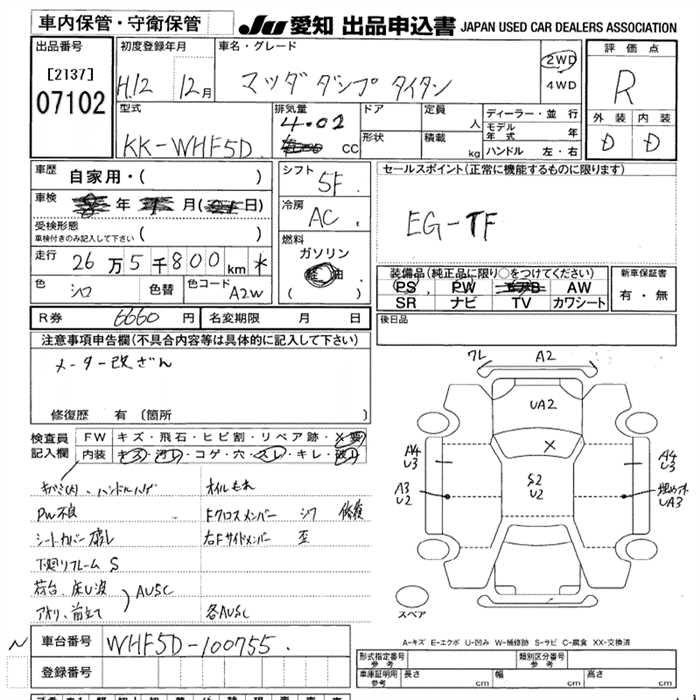 車内保管・守衛保管
JU 愛知 出品申込書 JAPAN USED CAR DEALERS ASSOCIATION
出品番号
[2137]
07102
初度登録年月
H.12 12月
車名・グレード
マツダ ダンプ タイタン
2WD
4WD
評価点
R
外装 内装
D D
型式
KK-WHF5D
排気量
4.02
cc
ドア
形状
定員
人
積載
kg
ディーラー・並行
モデル年式 年
ハンドル 左・右
車歴
自家用・( )
車検
年 月( 日)
受検形態
車検付きのみ記入して下さい ( )
走行
26万5千800km *
色
シロ
色替
色コード
A2W
シフト
5F
冷房
AC
燃料
ガソリン
( )
セールスポイント(正常に機能するものに限ります)
EG-TF
装備品(純正品に限り○をつけてください)
PS PW AW
SR ナビ TV カワシート
新車保証書
有・無
後日品
R券 6660 円
名変期限 月 日
注意事項申告欄(不具合内容等は具体的に記入して下さい)
メーター改ざん
修復歴 有 (箇所
検査員
記入欄
FW キズ・飛石・ヒビ割・リペア跡・X要
内装 キズ・汚レ・コゲ・穴・スレ・キレ・破レ
オイルもれ
PW不良
Fクロスメンバー シワ 修復
シートカバー
右Fサイドメンバー 歪
下廻リフレーム S
荷台、床U波
AUSC
アオリ、前立て
各AUSC
ワレ
A2
UA2
X
S2
U2
A4
U3
A3
U2
A4
U3
UA3
スペア
A-キズ E-エクボ U-凹み W-補修跡 S-サビ C-腐食 XX-交換済
N
車台番号
WHF5D-100755
登録番号
形式指定番号
参考
類別区分番号
参考
車庫証明用
参考
長さ cm 幅 cm 高さ cm